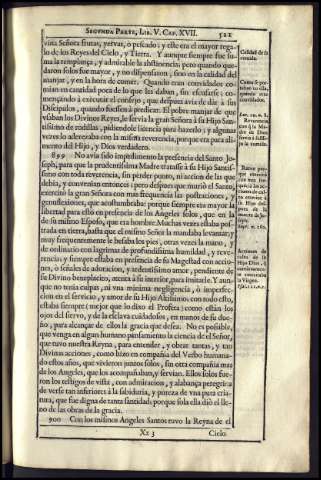 SEGVNDA PARTE, LIB. V. CAP. XVII. 521
vina Señora frutas, yervas, ò pescado; y este era el mayor rega-
lo de los Reyes del Cielo, y Tierra. Y aunque siempre fue su-
ma la templança, y admirable la abstinencia; pero quando que-
daron solos fue mayor, y no dispensaron, sino en la calidad del
manjar, y en la hora de comer. Quando eran convidados co-
mian en cantidad poca de lo que les daban, sin escusarse; co-
mençando à executar el consejo, que despues avia de dàr à sus
Discipulos, quando fuessen à predicar. El pobre manjar de que
vsaban los Divinos Reyes, le servia la gran Señora à su Hijo San-
tissimo de rodillas, pidiendole licencia para hazerlo; y algunas
vezes lo adereçaba con la misma reverencia, porque era para ali-
mento del Hijo, y Dios verdadero.
899 No avia sido impedimento la presencia del Santo Jo-
seph, para que la prudentissima Madre tratasse à su Hijo Santissi-
mo con toda reverencia, sin perder punto, ni accion de las que
debia, y convenian entonces; pero despues que muriò el Santo,
exercitò la gran Señora con mas frequencia las postraciones, y
genuflexiones, que acostumbraba: porque siempre era mayor la
libertad para esto en presencia de los Angeles solos, que en la
de su mismo Esposo, que era hombre. Muchas vezes estaba pos-
trada en tierra, hasta que el mismo Señor la mandaba levantar; y
muy frequentemente le besaba los pies, otras vezes la mano, y
de ordinario con lagrimas de profundissima humildad, y reve-
rencia; y siempre estaba en presencia de su Magestad con accio-
nes, ò señales de adoracion, y ardentissimo amor, pendiente de
su Divino beneplacito, atenta à su interior, para imitarle. Y aun-
que no tenia culpas, ni vna minima negligencia, ò imperfec-
cion en el servicio, y amor de su Hijo Altissimo, con todo esto,
estaba siempre (mejor que lo dixo el Profeta) como están los
ojos del siervo, y de la esclava cuidadosos, en manos de su due-
ño, para alcançar de ellos la gracia que desea. No es possible,
que venga en algun humano pensamiento la ciencia de el Señor,
que tuvo nuestra Reyna, para entender, y obrar tantas, y tan
Divinas acciones, como hizo en compañia del Verbo humana-
do estos años, que vivieron juntos solos, sin otra compañia mas
de los Angeles, que los acompañaban, y servian. Ellos solos fue-
ron los testigos de vista, con admiracion, y alabança peregrina
de verse tan inferiores à la sabiduria, y pureza de vna pura cria-
tura, que fue digna de tanta santidad; porque sola ella diò el lle-
no de las obras de la gracia.
900 Con los mismos Angeles Santos tuvo la Reyna de el
Xx 3 Cielo
Calidad de la
comida.